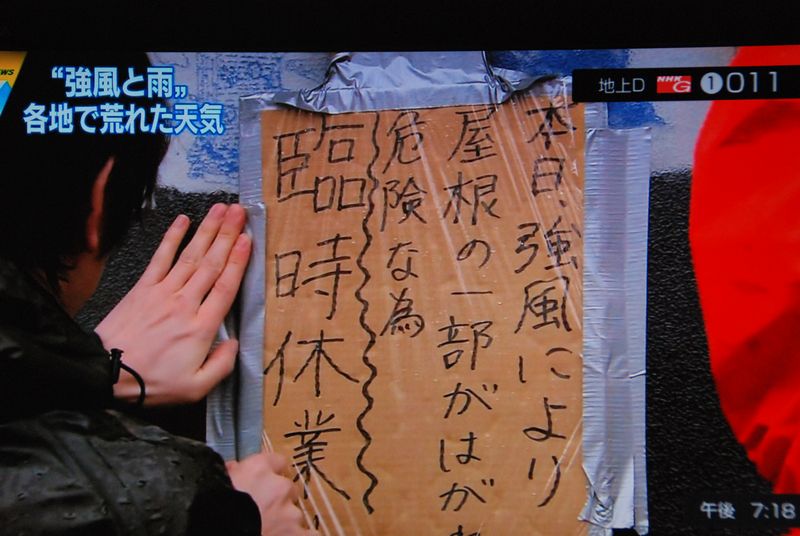 NEWS
“強風と雨„
各地で荒れた天気
地上D NHK G 1 011
本日、強風により
屋根の一部がはがれ
危険な為
臨時休業
午後 7:18